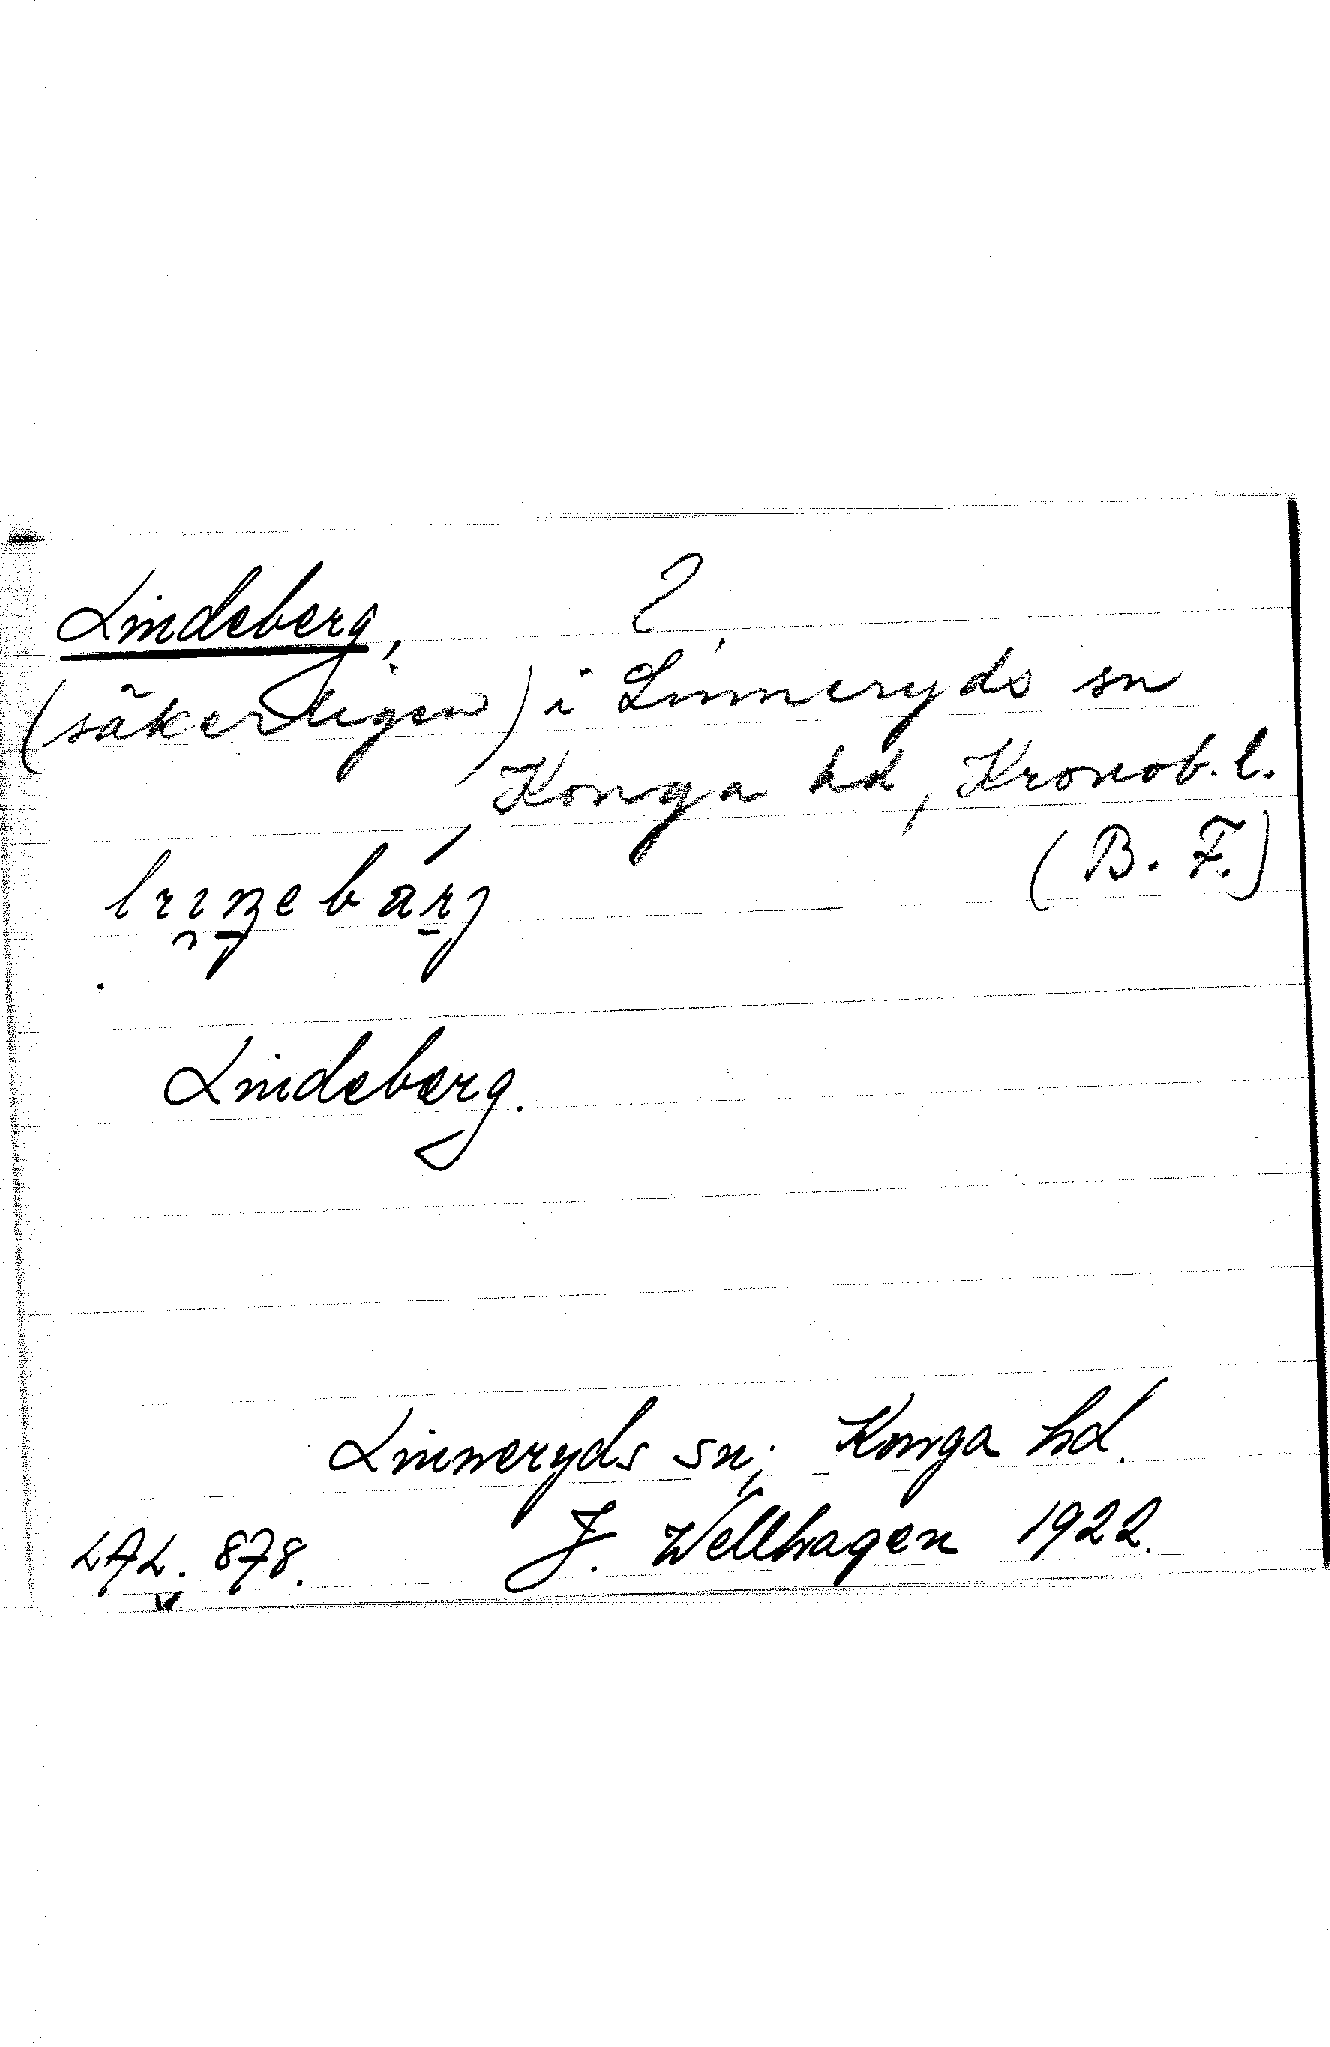 Lindeberg, ?
(säkerligen) i Linneryds sn
Konga hd, Kronob. l.
(B. F.)
Lindeberg.
Linneryds sn; Konga hd.
LAL. 878. J. Wellhagen 1922.